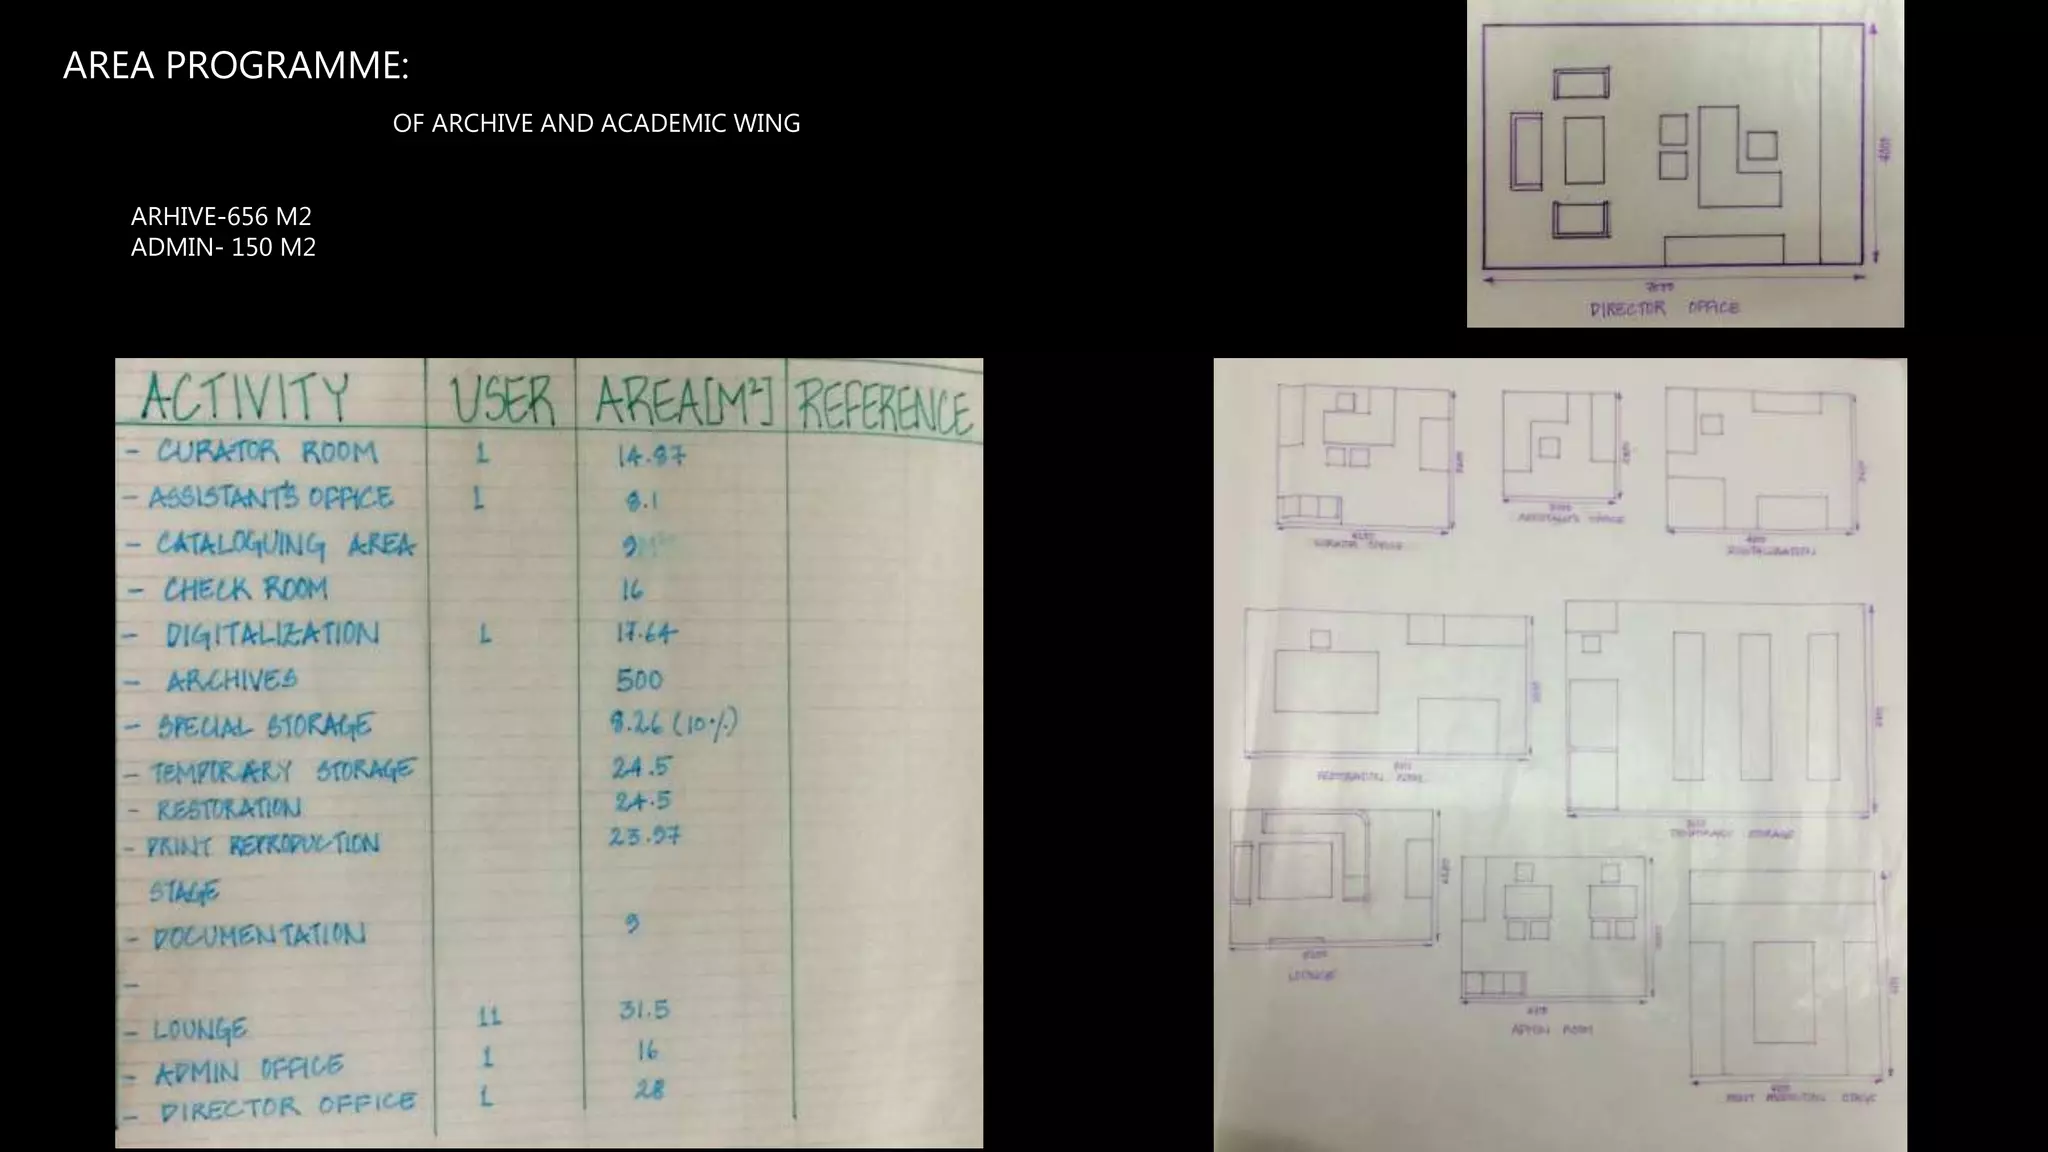 AREA PROGRAMME:
OF ARCHIVE AND ACADEMIC WING
ARHIVE-656 M2
ADMIN- 150 M2
DIRECTOR OFFICE
ACTIVITY USER AREA[M²] REFERENCE
- CURATOR ROOM 1 14.87
- ASSISTANT'S OFFICE 1 8.1
- CATALOGUING AREA 9
- CHECK ROOM 16
- DIGITALIZATION 1 17.64
- ARCHIVES 500
- SPECIAL STORAGE 8.26 (10%)
- TEMPORARY STORAGE 24.5
- RESTORATION 24.5
- PRINT REPRODUCTION 23.97
STAGE
- DOCUMENTATION 9
-
- LOUNGE 11 31.5
- ADMIN OFFICE 1 16
- DIRECTOR OFFICE 1 28
ASSISTANT'S OFFICE
DIGITALIZATION
TEMPORARY STORAGE
LOUNGE
ADMIN ROOM